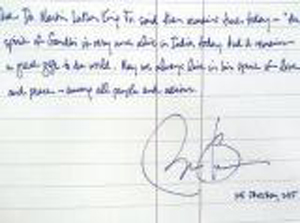 Dr. Martin Luther King Jr. said then remains true today - "the
spirit of Gandhi is very much alive in India today. And it remains -
a great gift to the world. May we always live in his spirit of love
and peace - among all people and nations.